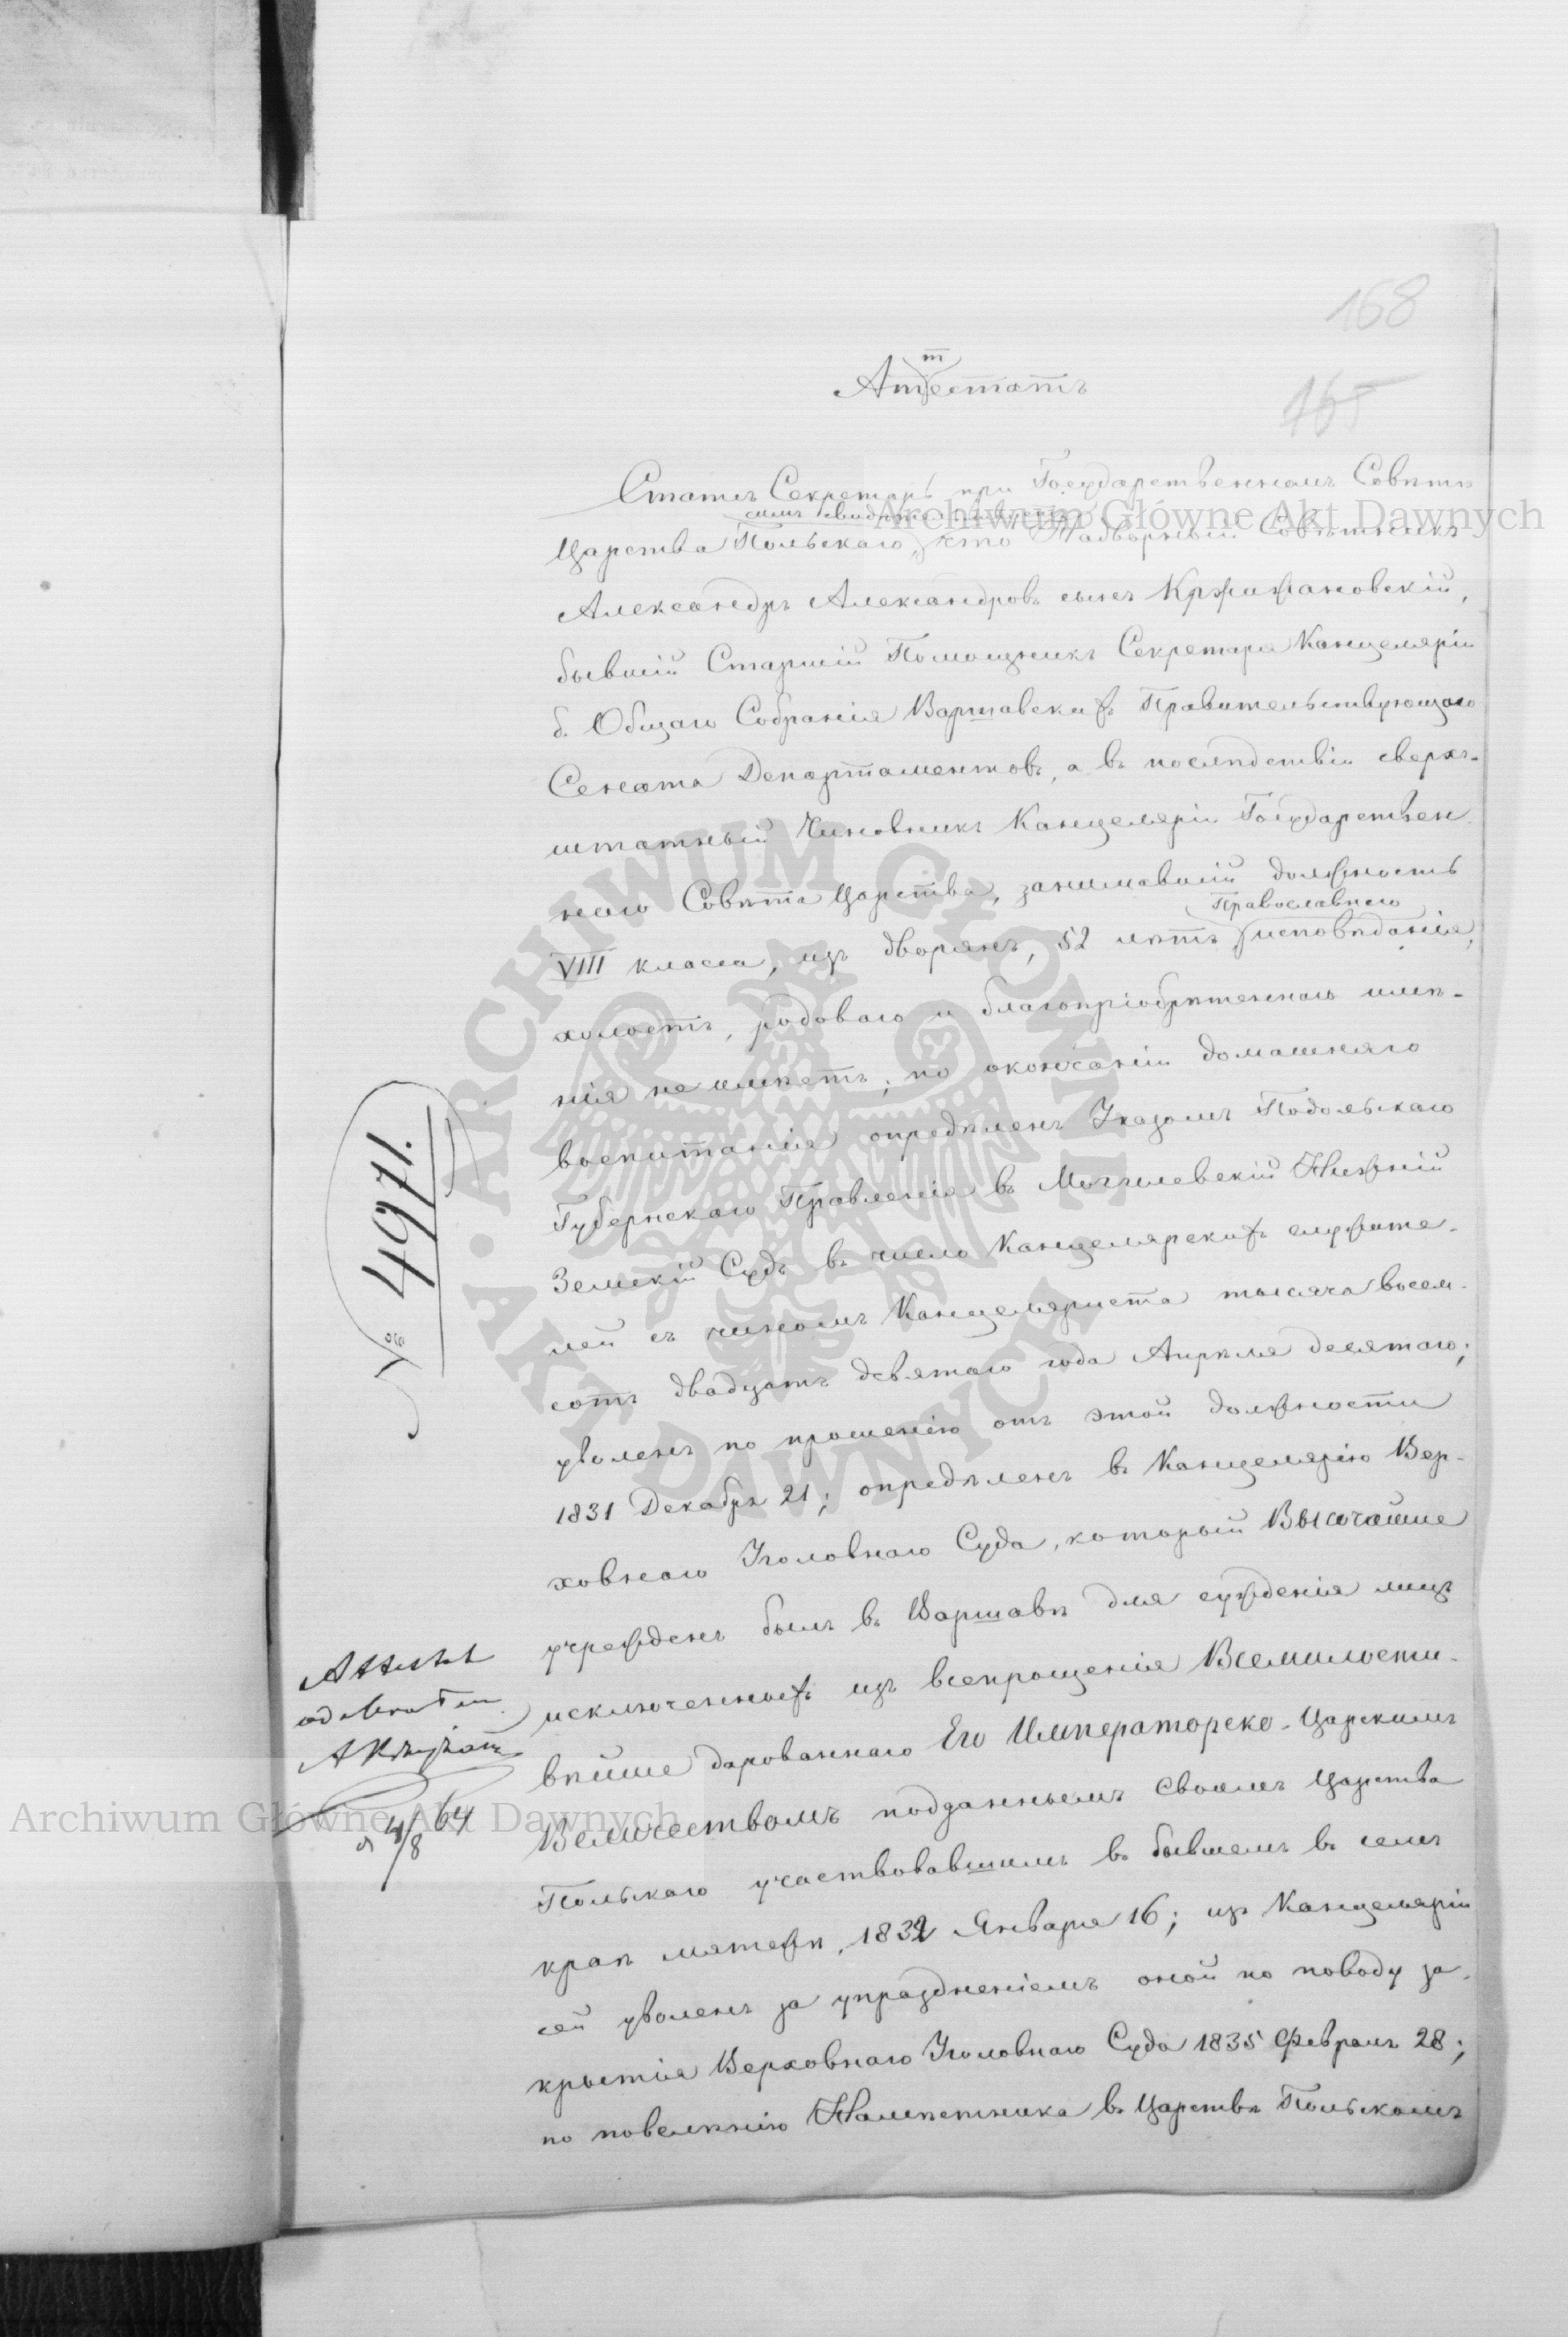 168
165
Аттестатъ
Статсъ Секретарь при Государственномъ Совѣтѣ
симъ свидѣтельствуетъ
Царства Польскаго, что Надворный Совѣтникъ
Александръ Александровъ сынъ Кржижановскій,
бывшій Старшій Помощникъ Секретаря Канцеляріи
б. Общаго Собранія Варшавскихъ Правительствующаго
Сената Департаментовъ, а въ послѣдствіи сверхъ-
штатный Чиновникъ Канцеляріи Государствен
наго Совѣта Царства, занимавшій должность
Православнаго
VIII класса, изъ дворянъ, 52 лѣтъ исповѣданія,
холостъ, родоваго и благопріобрѣтеннаго имѣ-
нія не имѣетъ; по окончаніи домашняго
воспитанія опредѣленъ Указомъ Подольскаго
Губернскаго Правленія въ Могилевскій Нижній
Земскій Судъ въ число Канцелярскихъ служите-
лей съ чиномъ Канцеляриста тысяча восем-
сотъ двадцать девятаго года Апрѣля десятаго;
уволенъ по прошенію отъ этой должности
1831 Декабря 21; опредѣленъ въ Канцелярію Вер-
ховнаго Уголовнаго Суда, который Высочайше
учрежденъ былъ въ Варшавѣ для сужденія лицъ
исключенныхъ изъ всепрощенія Всемилости-
вѣйше дарованнаго Его Императорско-Царскимъ
Величествомъ подданнымъ Своимъ Царства
Польскаго участвовавшимъ въ бывшемъ въ семъ
краѣ мятежѣ, 1832 Января 16; изъ Канцеляріи
сей уволенъ за упраздненіемъ оной по поводу за-
крытія Верховнаго Уголовнаго Суда 1835 Февраля 28;
по повелѣнію Намѣстника въ Царствѣ Польскомъ
№ 4971.
4/8 64
Archiwum Główne Akt Dawnych
Archiwum Główne Akt Dawnych
ARCHIWUM GŁÓWNE AKT DAWNYCH